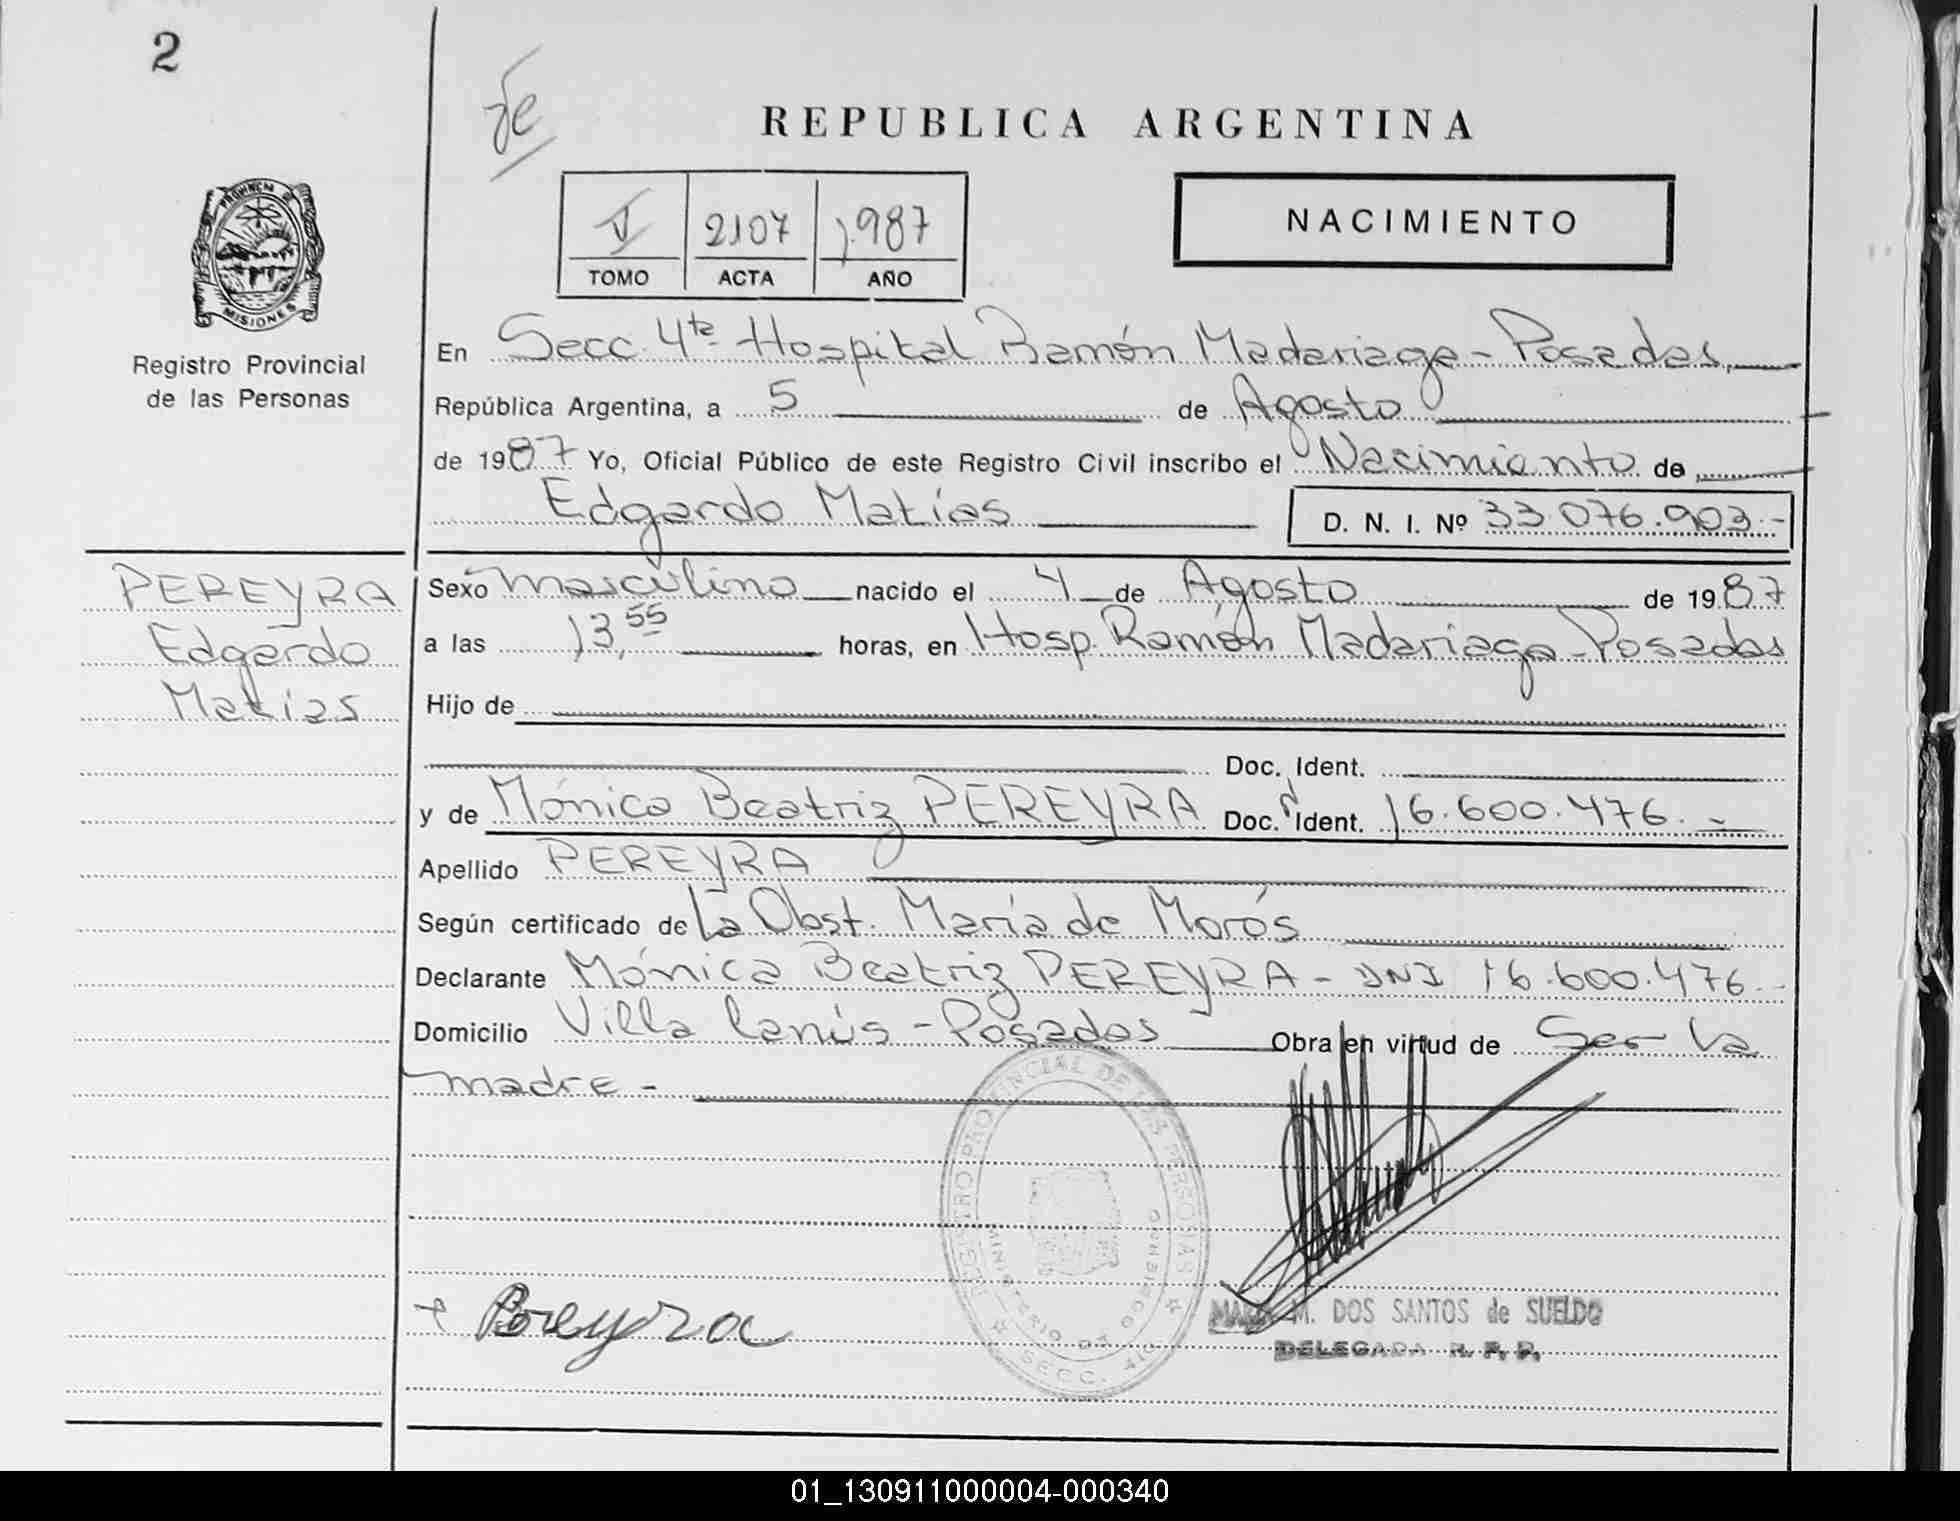 2
REPUBLICA ARGENTINA
I 2107 1987
TOMO ACTA AÑO
NACIMIENTO
PROVINCIA DE
MISIONES
Registro Provincial
de las Personas
En Secc. 4ta Hospital Ramón Madariaga - Posadas,
República Argentina, a 5 de Agosto
de 1987 Yo, Oficial Público de este Registro Civil inscribo el Nacimiento de
Edgardo Matías D. N. I. Nº 33.076.903.-
PEREYRA
Edgardo
Matías
Sexo masculino nacido el 4 de Agosto de 1987
a las 13,55 horas, en Hosp. Ramón Madariaga - Posadas
Hijo de
Doc. Ident.
y de Mónica Beatriz PEREYRA Doc. Ident. 16.600.476.-
Apellido PEREYRA
Según certificado de La Obst. María de Morós
Declarante Mónica Beatriz PEREYRA - DNI 16.600.476.-
Domicilio Villa Lanús - Posadas Obra en virtud de Ser la
madre -
REGISTRO PROVINCIAL DE LAS PERSONAS
MINISTERIO DE GOBIERNO
SECC. 4TA
Pereyra
M. DOS SANTOS de SUELDO
DELEGADA R. P. P.
01_130911000004-000340